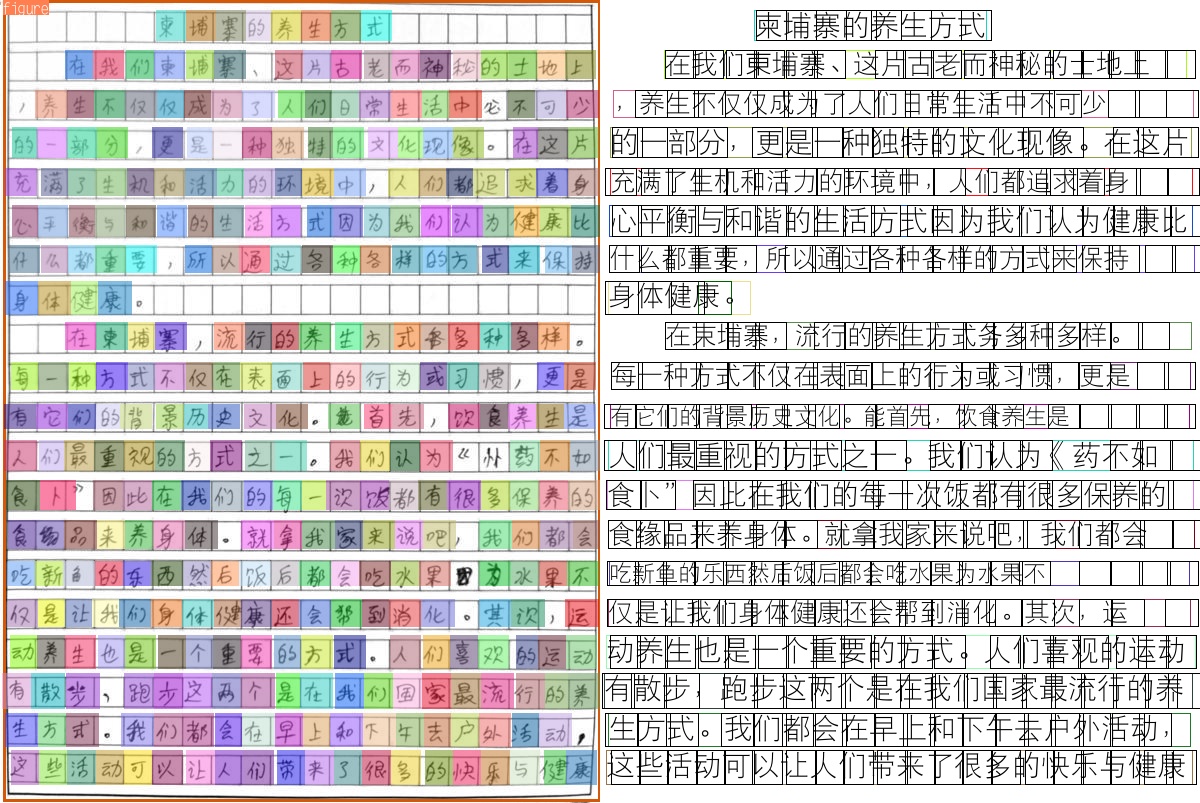 figure
柬埔寨的养生方式
在我们柬埔寨、这片古老而神秘的土地上
，养生不仅仅成为了人们日常生活中必不可少
的一部分，更是一种独特的文化现像。在这片
充满了生机和活力的环境中，人们都追求着身
心平衡与和谐的生活方式因为我们认为健康比
什么都重要，所以通过各种各样的方式来保持
身体健康。
在柬埔寨，流行的养生方式多种多样。
每一种方式不仅在表面上的行为或习惯，更是
有它们的背景历史文化。首先，饮食养生是
人们最重视的方式之一。我们认为“补药不如
食卜”因此在我们的每一次饭都有很多保养的
食物品来养身体。就拿我家来说吧，我们都会
吃新鱼的东西然后饭后都会吃水果因为水果不
仅是让我们身体健康还会帮到消化。其次，运
动养生也是一个重要的方式。人们喜欢的运动
有散步，跑步这两个是在我们国家最流行的养
生方式。我们都会在早上和下午去户外活动，
这些活动可以让人们带来了很多的快乐与健康
柬埔寨的养生方式
在我们柬埔寨、这片古老而神秘的土地上
，养生不仅仅成为了人们日常生活中不可少
的一部分，更是一种独特的文化现像。在这片
充满了生机和活力的环境中，人们都追求着身
心平衡与和谐的生活方式因为我们认为健康比
什么都重要，所以通过各种各样的方式来保持
身体健康。
在柬埔寨，流行的养生方式务多种多样。
每一种方式不仅在表面上的行为或习惯，更是
有它们的背景历史文化。能首先，饮食养生是
人们最重视的方式之一。我们认为《药不如
食卜”因此在我们的每一次饭都有很多保养的
食缘品来养身体。就拿我家来说吧，我们都会
吃新鱼的乐西然后饭后都会吃水果为水果不
仅是让我们身体健康还会帮到消化。其次，运
动养生也是一个重要的方式。人们喜观的运动
有散步，跑步这两个是在我们国家最流行的养
生方式。我们都会在早上和下午去户外活动，
这些活动可以让人们带来了很多的快乐与健康